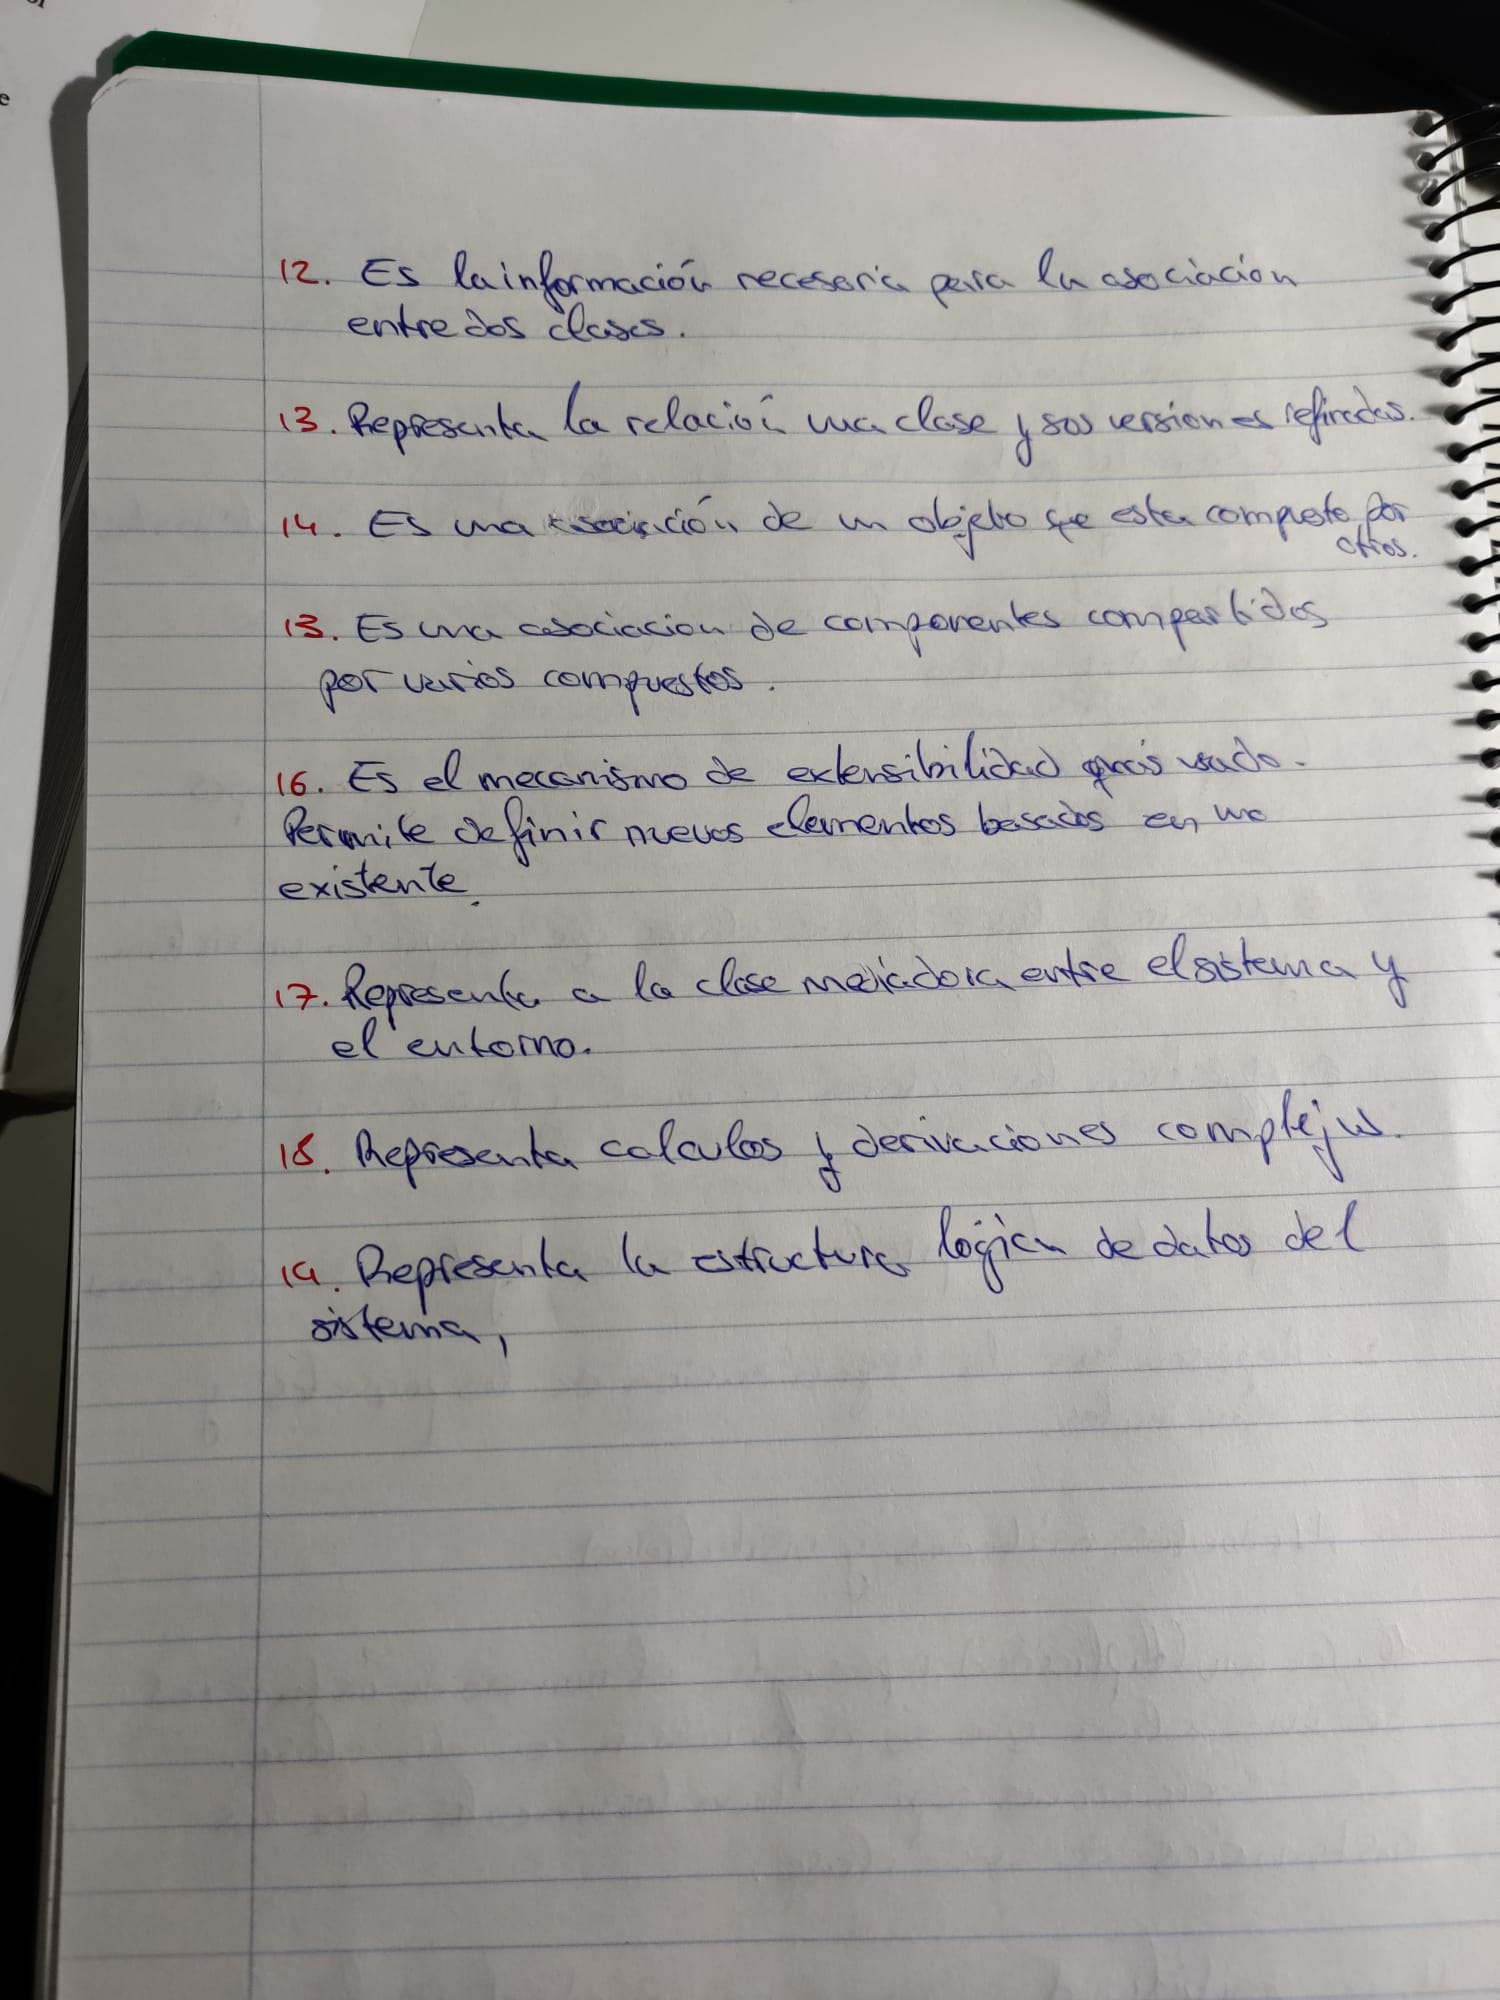 12. Es la información necesaria para la asociación
entre dos clases.
13. Representa la relación una clase y sus versiones refinadas.
14. Es una asociación de un objeto que esta compuesto por
otros.
15. Es una asociacion de componentes compartidos
por varios compuestos.
16. Es el mecanismo de extensibilidad más usado.
Permite definir nuevos elementos basados en uno
existente.
17. Representa a la clase mediadora entre el sistema y
el entorno.
18. Representa calculos y derivaciones complejas.
19. Representa la estructura lógica de datos del
sistema,